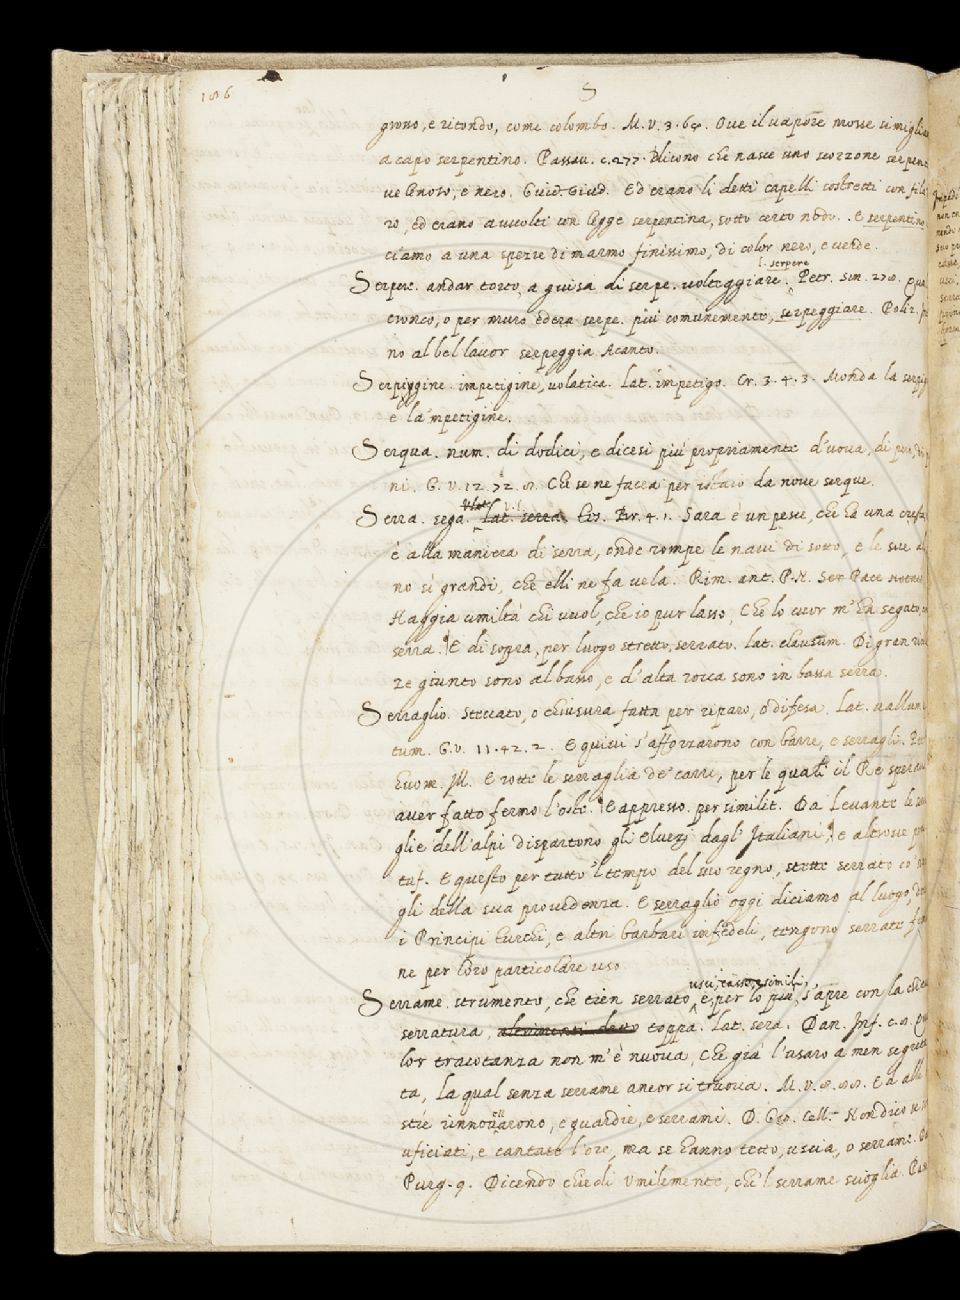 186
S
giono, e ritondo, come colombo. M. V. 3. 64. Ove il vapore mosse simiglia
a capo serpentino. Passav. c. 277. Dicono che nasce uno scorzone serpen
ve lenoso, e nero. Guid. Giud. Ed erano li detti capelli costretti con fila
ro, ed erano avvolti con legge serpentina, sotto certo nodo. E serpentino
ciamo a una spezie di marmo finissimo, di color nero, e verde.
l. serpere
Serpere. andar torto, a guisa di serpe. volteggiare. Petr. Son. 270.
tronco, o per muro edera serpe. più comunemente, serpeggiare. Poliz.
no al bel lavor serpeggia Acanto.
Serpiggine. impetigine, volatica. Lat. impetigo. Cr. 3. 4. 3. Monda la serpig
e la 'mpetigine.
Serqua. num. di dodici, e dicesi più propriamente d'uova, di pere, di
ni. G. V. 12. 72. 8. Che se ne facea per istaio da nove serque.
Serra. sega. Lat. serra. Tes. Br. 4. 1. Sara è un pesce, che ha una cresta
è alla maniera di serra, onde rompe le navi di sotto, e le sue al
no sì grandi, che elli ne fa vela. Rim. ant. P. N. Ser Pace notaio
Haggia umiltà chi vuol, che io pur lasso, Che lo cuor m'ha segato,
serra. E di sopra, per luogo stretto, serrato. Lat. clausum. Di gran
re giunto sono al basso, e d'alta rocca sono in bassa serra.
Serraglio. steccato, o chiusura fatta per riparo, o difesa. Lat. vallum
tum. G. V. 11. 42. 2. E quivi s'afforzarono con barre, e serragli. Petr.
huom. Ill. E rotte le serraglia de' carri, per le quali il Re sperava
aver fatto fermo l'oste. E appresso. per similit. Da Levante le
glie dell'alpi dispartono gli Elvezi dagli Italiani, e altrove
tuf. E questo per tutto 'l tempo del suo regno, stette serrato co'
gli della sua provedenza. E serraglio oggi diciamo al luogo,
i Principi Turchi, e altri barbari infedeli, tengono serrate
ne per loro particolare uso.
usci, casse, e simili,
Serrame. strumento, che tien serrato, e per lo più, s'apre con la
serratura, altrimenti detto toppa. Lat. sera. Dan. Inf. c. 8.
lor tracotanza non m'è nuova, Che già l'usaro a men segreta
ta, La qual senza serrame ancor si truova. M. V. 8. 88. Ed all
stie rinnovarono, e guardie, e serrami. D. Gio. Cell. Non dico
uficiati, e cantate l'ore, ma se hanno tetto, uscia, o serrami.
Purg. 9. Dicendo chiedi Umilemente, che 'l serrame scioglia.